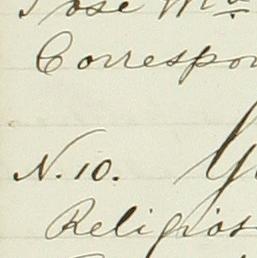 Jose Mª
Correspon
N. 10.
Religios